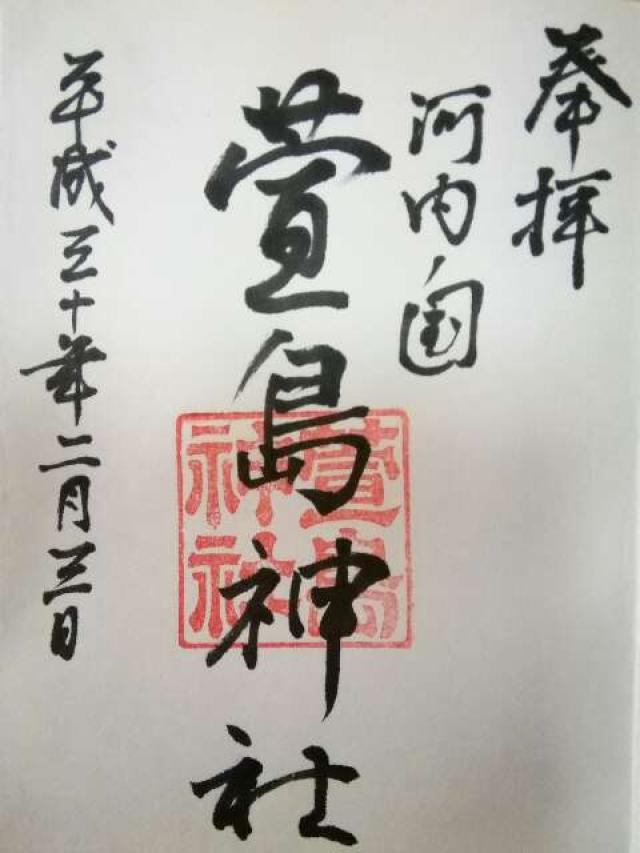 奉拝
河内国
萱島神社
萱島
神社
平成三十年二月三日